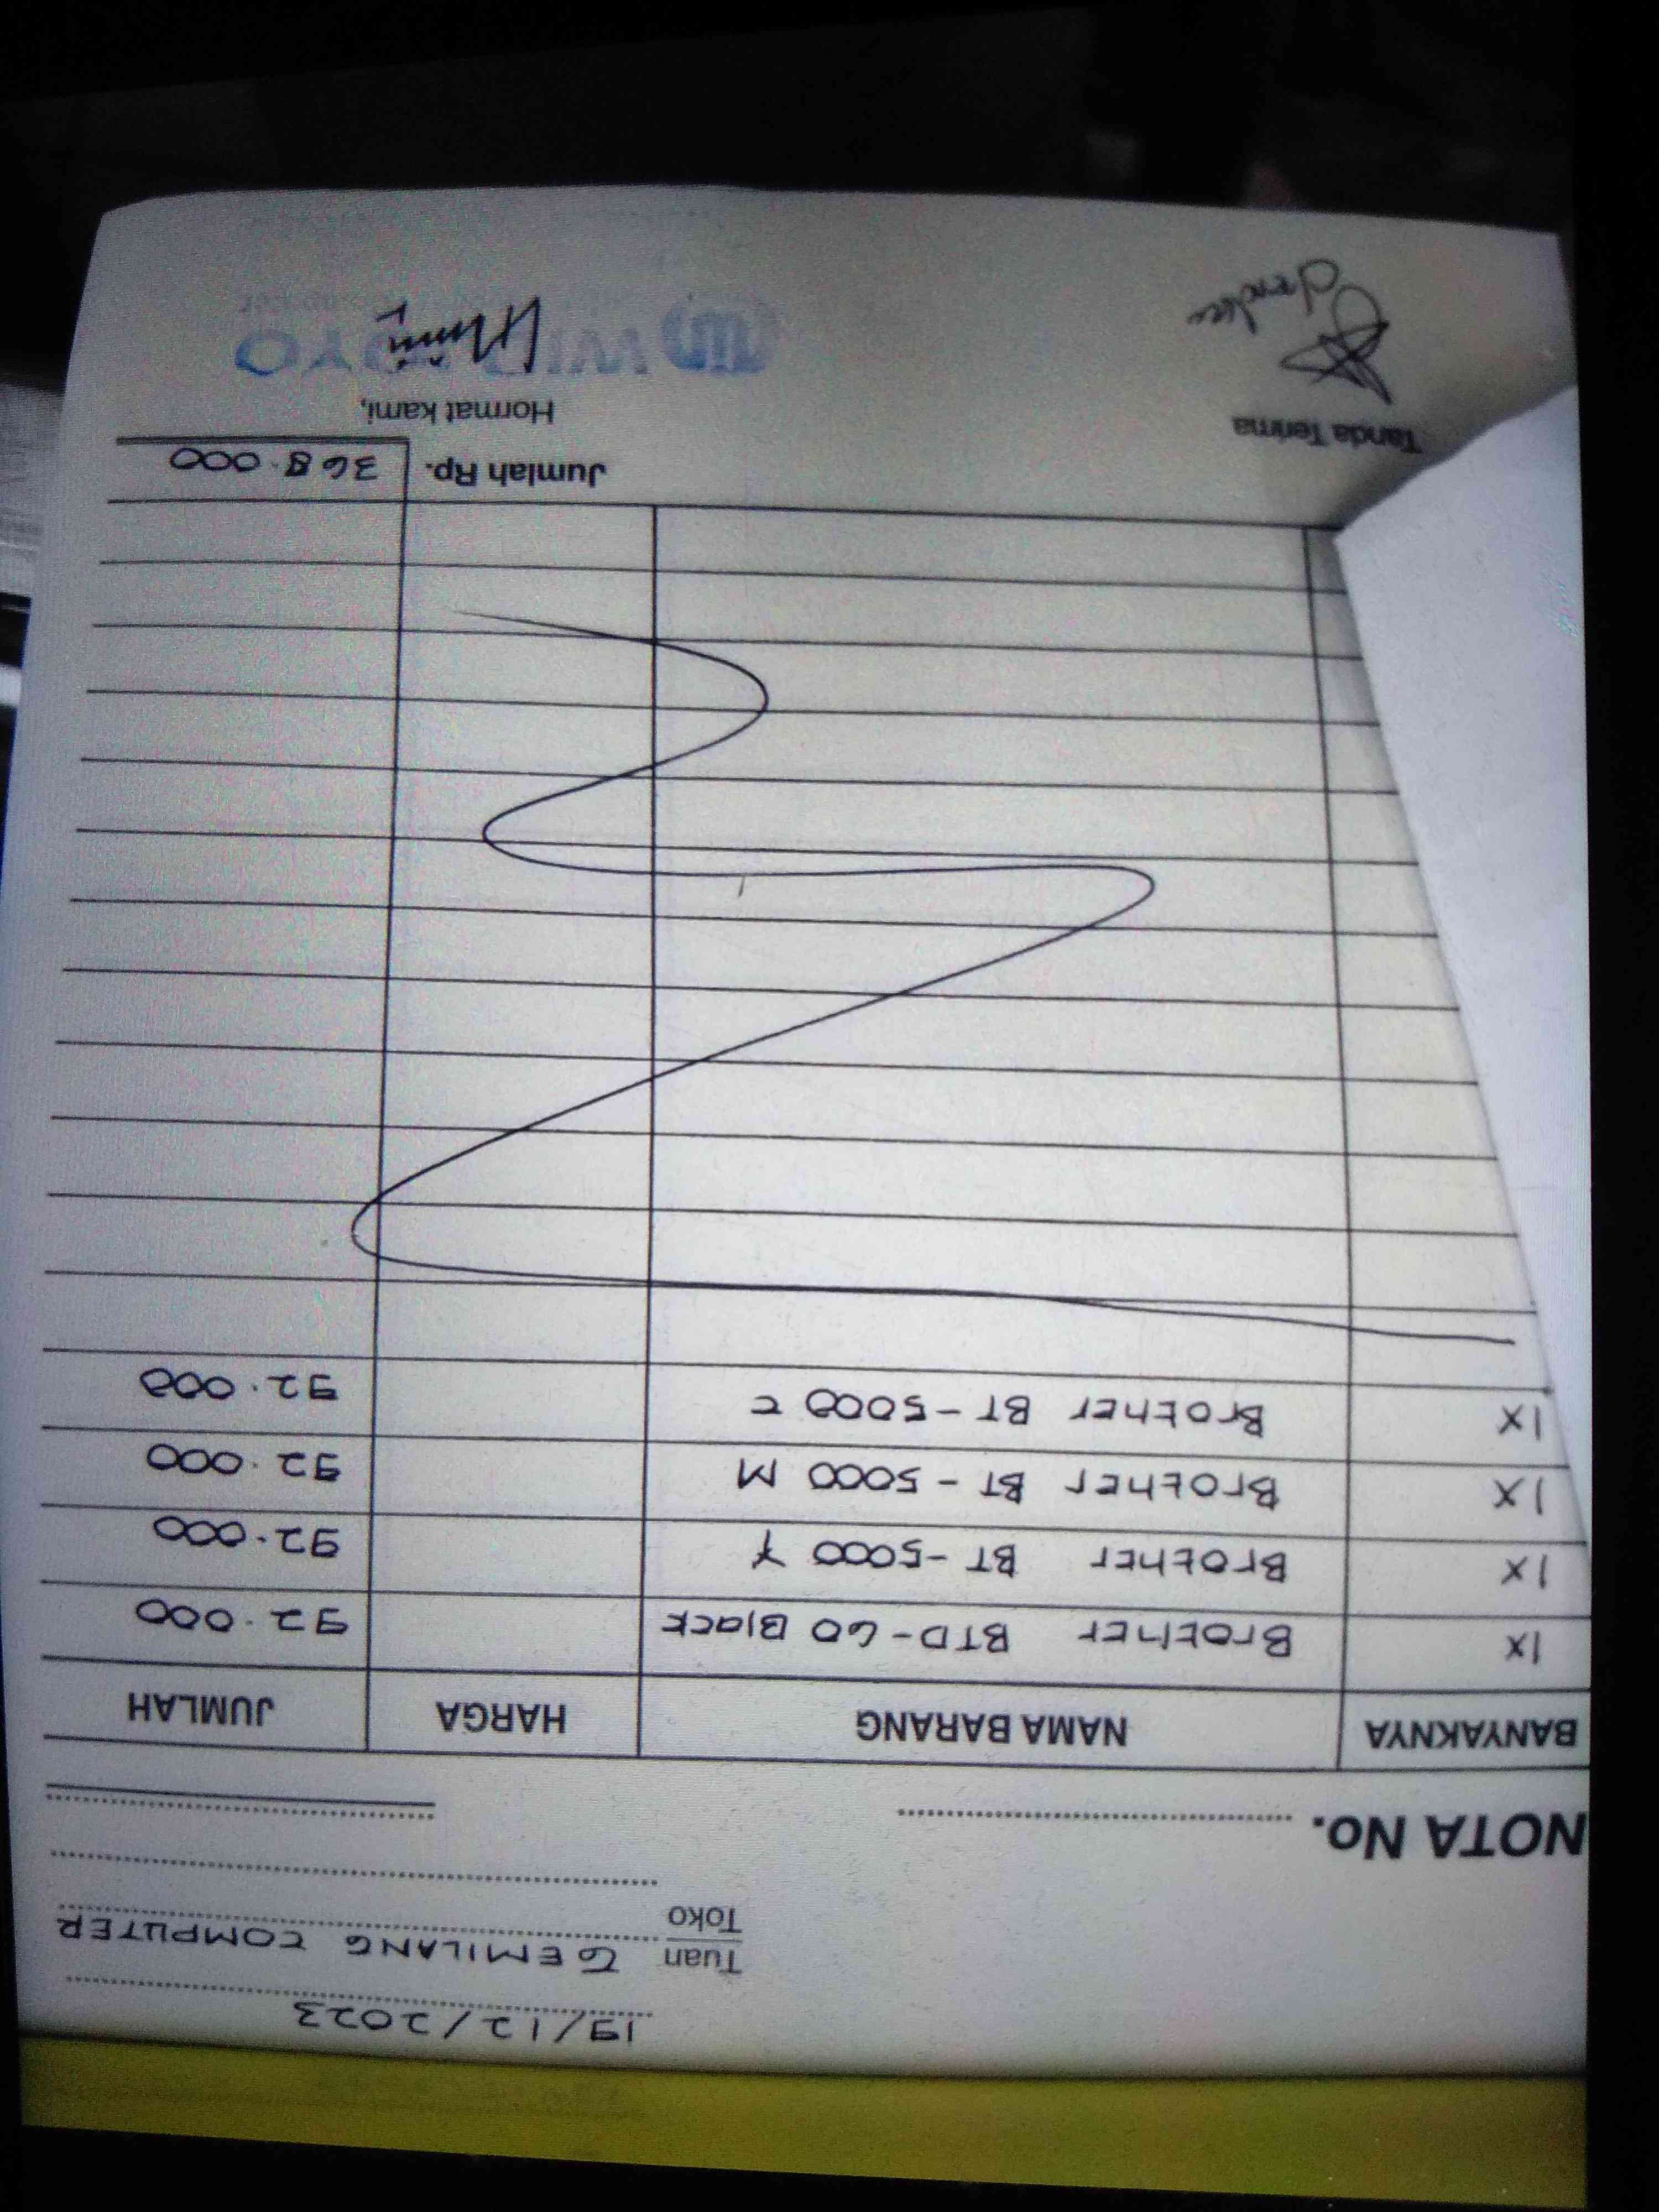 19/12/2023
Tuan GEMILANG COMPUTER
Toko
NOTA No.
BANYAKNYA NAMA BARANG HARGA JUMLAH
1X Brother BTD-60 Black 92.000
1X Brother BT-5000 Y 92.000
1X Brother BT-5000 M 92.000
1X Brother BT-5000 C 92.000
Jumlah Rp. 368.000
Tanda Terima Hormat kami,